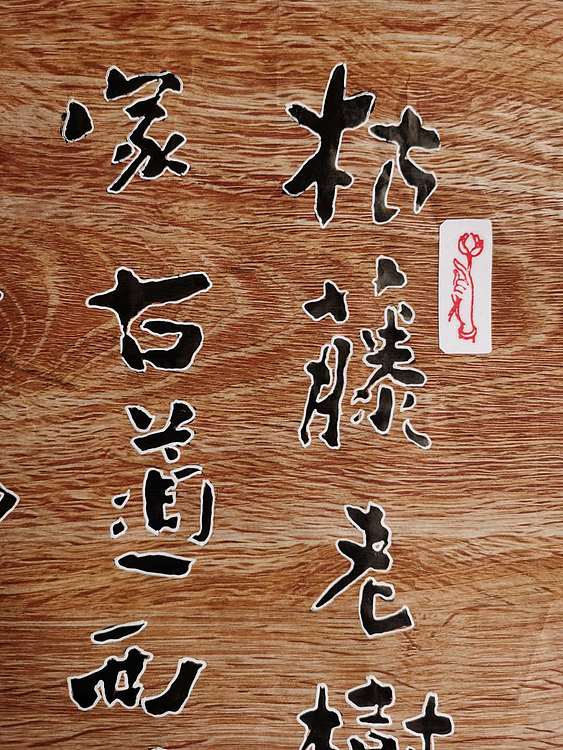 枯藤老樹
家古道西